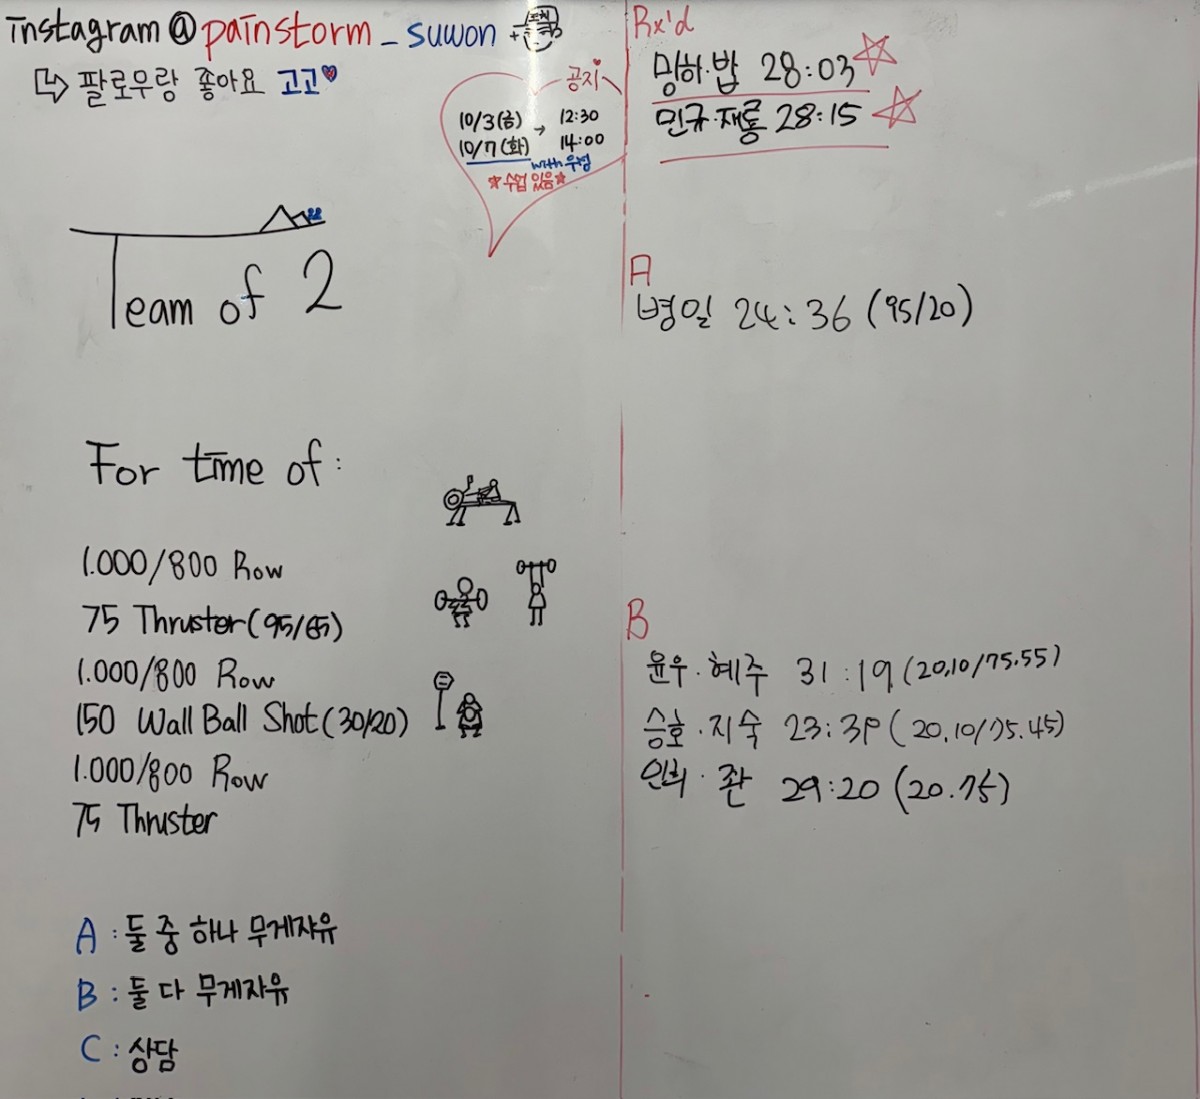 instagram@painstorm_suwon
팔로우랑 좋아요 고고
공지
10/3(금) → 12:30
10/7(화) 14:00
with 우성
☆수업 있음☆
Team of 2
For time of:
1.000/800 Row
75 Thruster(95/65)
1.000/800 Row
150 Wall Ball Shot(30/20)
1.000/800 Row
75 Thruster
A : 둘 중 하나 무게자유
B : 둘 다 무게자유
C : 상담
Rx'd
밍하·밥 28:03
민규·재롱 28:15
A
병일 24:36 (95/20)
B
윤우·혜주 31:19 (20,10/75.55)
승호·지숙 23:39 (20.10/75.45)
인희·좐 29:20 (20.75)